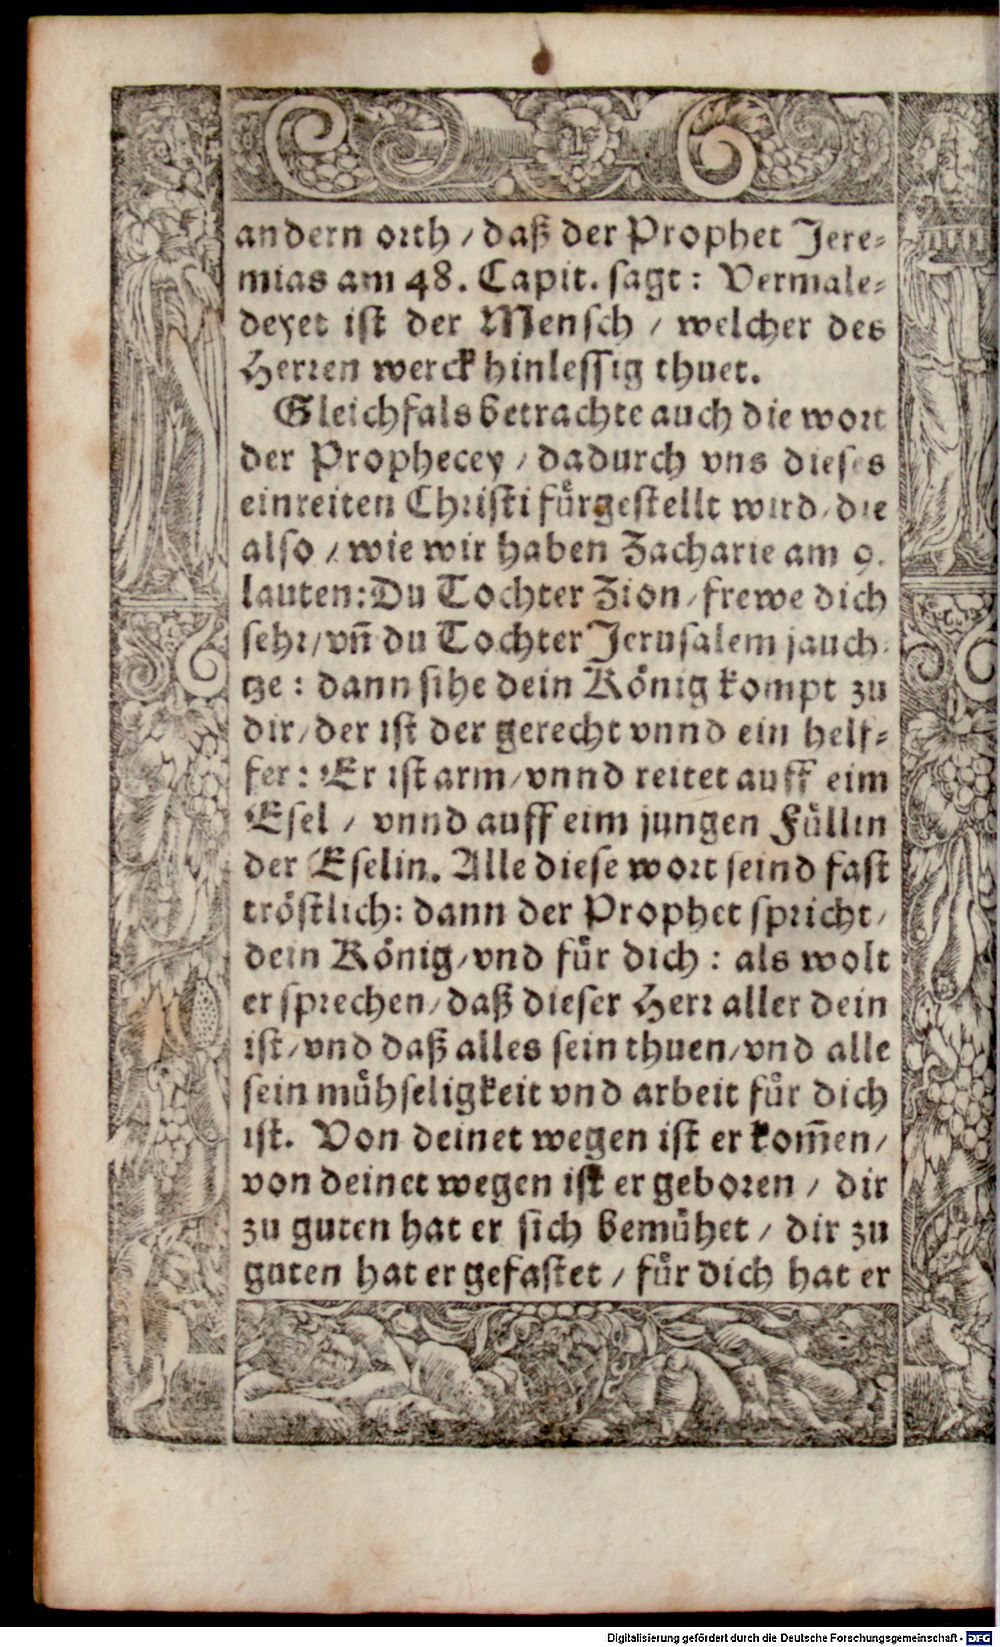 andern orth / daß der Prophet Jere⸗
mias am 48. Capit. sagt: Vermale⸗
deyet ist der Mensch / welcher des
Herren werck hinlessig thuet.
Gleichfals betrachte auch die wort
der Prophecey / dadurch vns dieses
einreiten Christi fuͤrgestellt wird / die
also / wie wir haben Zacharie am 9.
lauten: Du Tochter Zion / frewe dich
sehr / vn̄ du Tochter Jerusalem jauch⸗
tze: dann sihe dein Koͤnig kompt zu
dir / der ist der gerecht vnnd ein helf⸗
fer: Er ist arm / vnnd reitet auff eim
Esel / vnnd auff eim jungen Fuͤllin
der Eselin. Alle diese wort seind fast
troͤstlich: dann der Prophet spricht /
dein Koͤnig / vnd fuͤr dich: als wolt
er sprechen / daß dieser Herr aller dein
ist / vnd daß alles sein thuen / vnd alle
sein muͤhseligkeit vnd arbeit fuͤr dich
ist. Von deinet wegen ist er kom̄en /
von deinet wegen ist er geboren / dir
zu guten hat er sich bemuͤhet / dir zu
guten hat er gefastet / fuͤr dich hat er
Digitalisierung gefördert durch die Deutsche Forschungsgemeinschaft - DFG